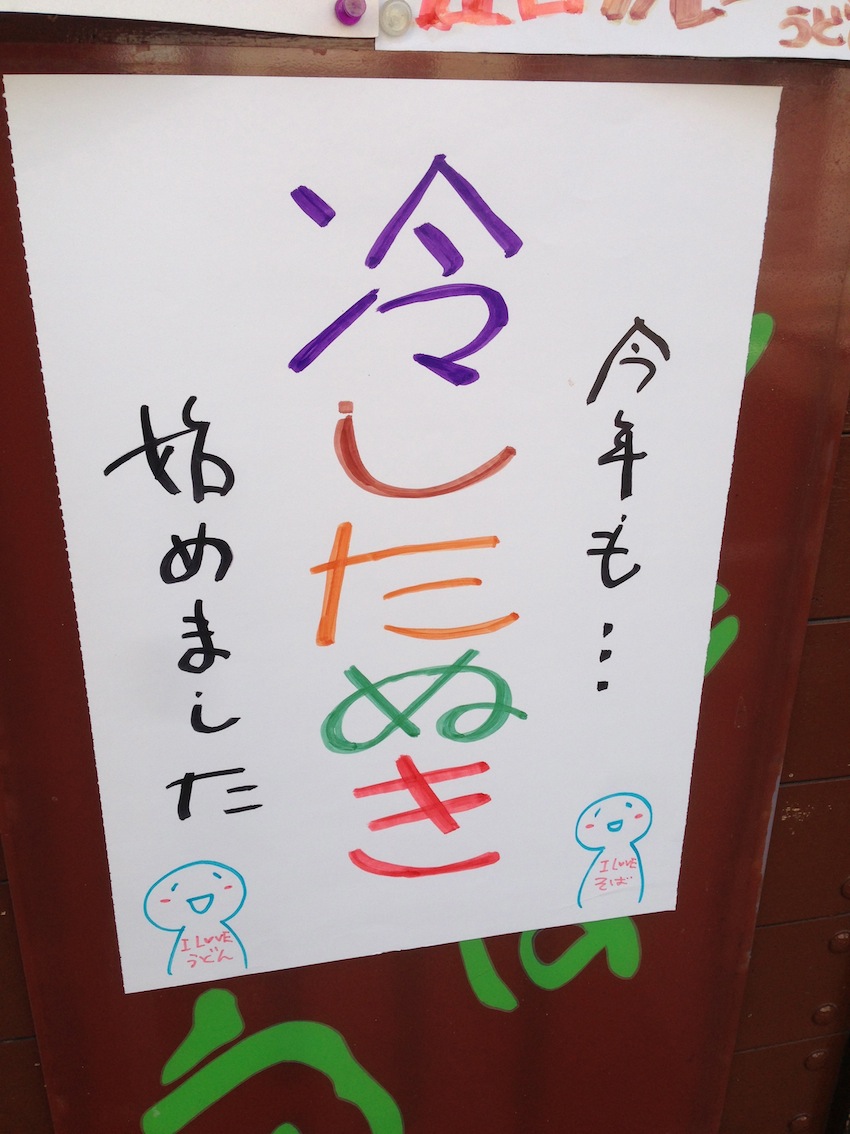 今年も…
冷したぬき
始めました
I LOVE
そば
I LOVE
うどん